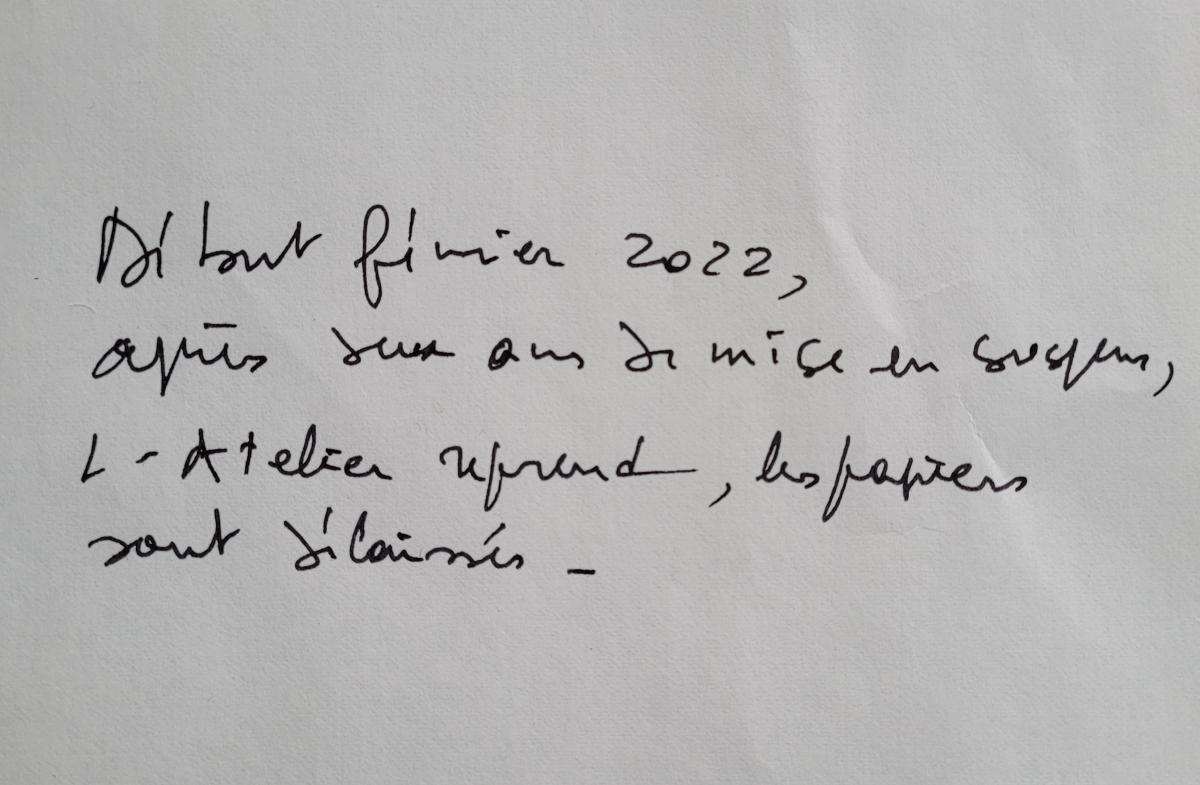 Début février 2022,
après deux ans de mise en suspens,
L-Atelier reprend, les papiers
sont délaissés -